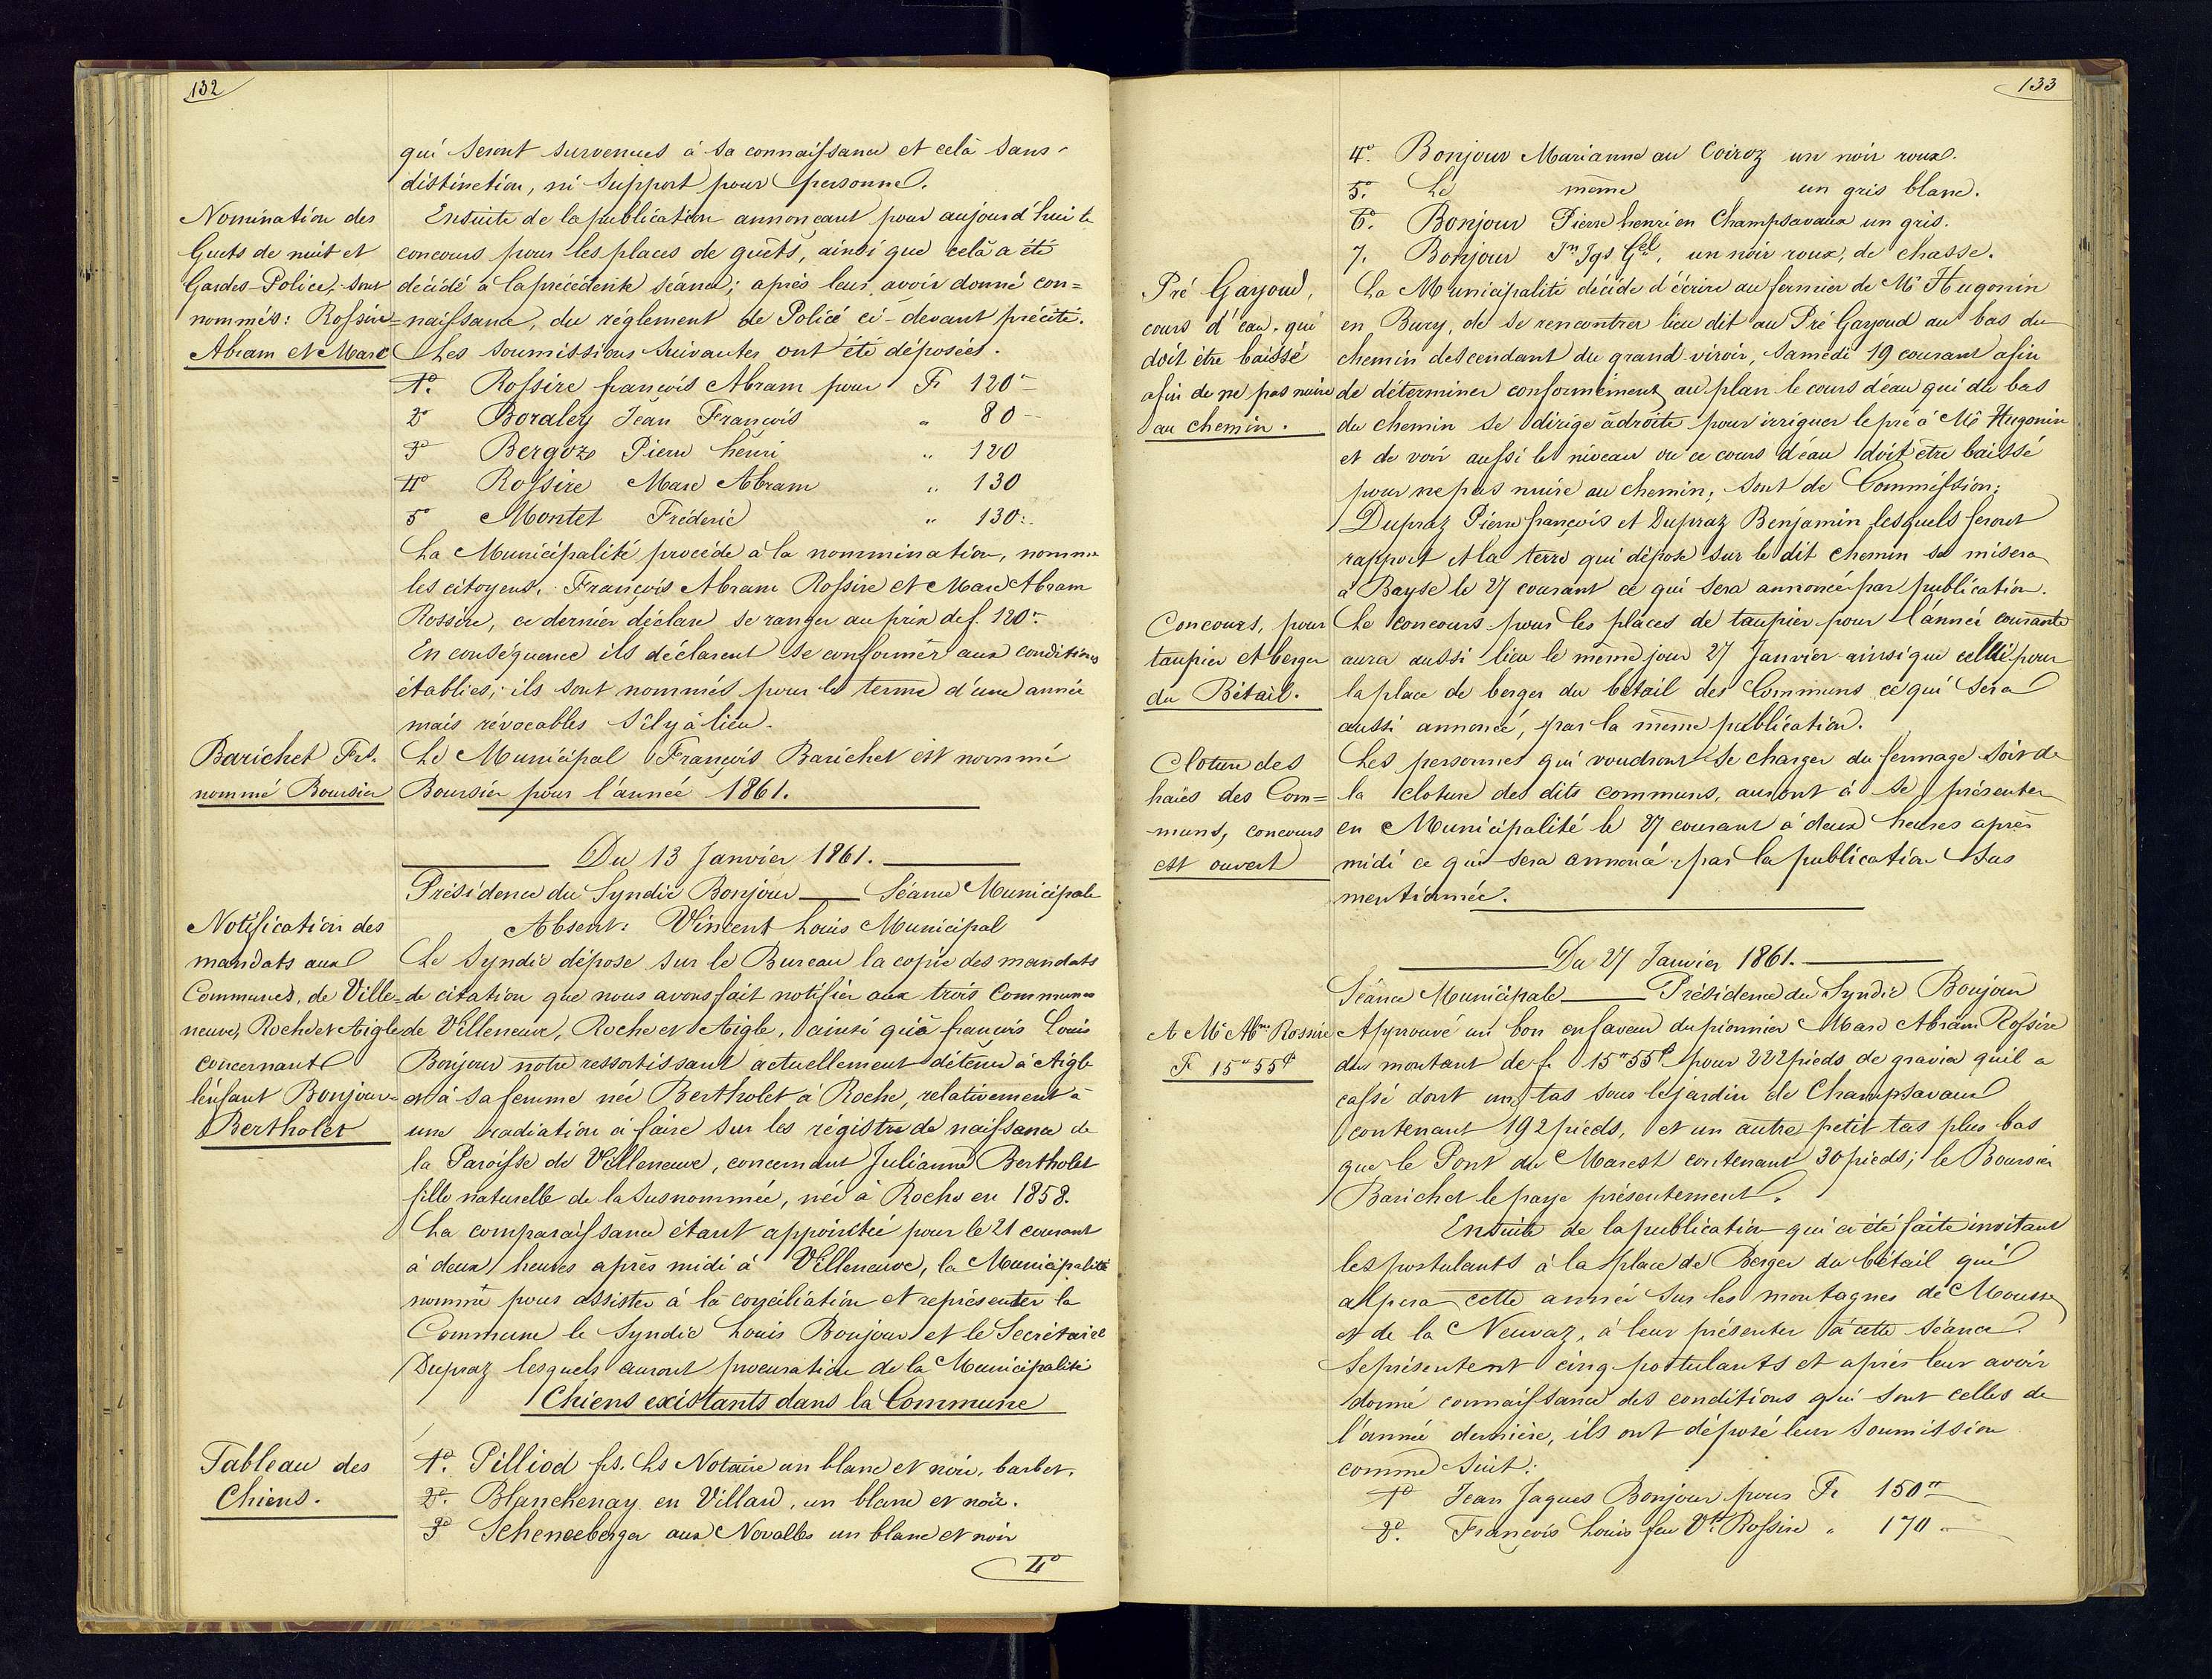 132
qui seront survenues à sa connaissance et celà sans
distinction, ni support pour personne.
Nomination des
Guets de nuit et
Gardes-Police, sont
nommés: Rossire
Abram et Marc
Ensuite de la publication annonçant pour aujourd'hui le
concours pour les places de guêts, ainsi que celà a été
décidé à la précédente séance; après leur avoir donné con=
=naissance, du réglement de Police ci-devant précité.
Les soumissions suivantes ont été déposées.
1o. Rossire françois Abram pour Fr 120"
2o Boraley Jean François " 80
3o Bergoz Pierre henri " 120
4o Rossire Marc Abram " 130
5o Montet Fréderic " 130.
La Municipalité procède à la nommination, nomme
les citoyens, François Abram Rossire et Marc Abram
Rossire, ce dernier déclare se ranger au prix de f. 120"
En conséquence ils déclarent se conformer aux conditions
établies; ils sont nommés pour le terme d'une année
mais révocables s'il y à lieu.
Barichet Frs.
nommé Boursier
Le Municipal François Barichet est nommé
Boursier pour l'année 1861.
Du 13 Janvier 1861.
Présidence du Syndic Bonjour Séance Municipale
Absent: Vincent Louis Municipal
Notification des
mandats aux
Communes, de Ville=
neuve, Roche et Aigle
concernant
l'enfant Bonjour-
Bertholet
Le Syndic dépose sur le Bureau la copie des mandats
de citation que nous avons fait notifier aux trois Communes
de Villeneuve, Roche et Aigle, ainsi qu'à francois Louis
Bonjour notre ressortissant actuellement détenu à Aigle
et à sa femme née Bertholet à Roche, relativement à
une radiation à faire sur les régistre de naissance de
la Paroisse de Villeneuve, concernant Julianne Bertholet
fille naturelle de la susnommée, née à Roche en 1858.
La comparaissance étant appointée pour le 21 courant
à deux heures après midi à Villeneuve, la Municipalité
nomme pour assister à la conciliation et représenter la
Commune le Syndic Louis Bonjour et le Secrétaire
Dupraz lesquels auront procuration de la Municipalité
Chiens existants dans la Commune
Tableau des
Chiens.
1o. Pilliod fs. Ls Notaire un blanc et noir, barbet.
2o. Blanchenay en Villard, un blanc et noir.
3o Scheneeberger aux Novalles un blanc et noir
4o
133
4o. Bonjour Marianne au Coiroz un noir roux.
5o. Le même un gris blanc.
6o. Bonjour Pierre henri en Champsavaux un gris.
7. Bonjour Jn Jqs Gel, un noir roux, de chasse.
Pré Gayoud,
cours d'eau, qui
doit être baissé
afin de ne pas nuire
au chemin.
La Municipalité décide d'écrire au fermier de Mr Hugonin
en Bury, de se rencontrer lieu dit au Pré Gayoud au bas du
chemin descendant du grand viroir, Samedi 19 courant afin
de déterminer conformément au plan le cours d'eau qui du bas
du chemin se dirige à droite pour irriguer le pré à Mr Hugonin
et de voir aussi le niveau ou ce cours d'eau doit être baissé
pour ne pas nuire au chemin; sont de Commission:
Dupraz Pierre françois et Dupraz Benjamin lesquels feront
rapport et la terre qui dépose sur le dit chemin se misera
à Bayse le 27 courant ce qui sera annoncé par publication.
Concours, pour
taupier et berger
du Bétail.
Le concours pour les places de taupier pour l'année courante
aura aussi lieu le même jour 27 Janvier ainsi que celle pour
la place de berger du bétail des Communs ce qui sera
aussi annoncé, par la même publication.
Cloture des
haies des Com=
muns, concours
est ouvert
Les personnes qui voudront se charger du fermage soit de
la cloture des dits communs, auront à se présenter
en Municipalité le 27 courant à deux heures après
midi ce qui sera annoncé par la publication sus
mentionnée.
Du 27 Janvier 1861.
Séance Municipale Présidence du Syndic Bonjour
A Mc Abm Rossire
Fr 15"55c
Approuvé un bon en faveur du pionnier Marc Abram Rossire
du montant de f. 15"55c pour 222 pieds de gravier qu'il a
cassé dont un tas sous le jardin de Champsavaux
contenant 192 pieds, et un autre petit tas plus bas
que le Pont du Marest contenant 30 pieds; le Boursier
Barichet le paye présentement.
Ensuite de la publication qui a été faite invitant
les postulants à la place de Berger du bétail qui
alpera cette année sur les montagnes de Mousse
et de la Neuvaz, à leur présenter à cette séance.
Se présentent cinq postulants et après leur avoir
donné connaissance des conditions qui sont celles de
l'année dernière, ils ont déposé leur soumission
comme suit:
1o Jean Jaques Bonjour pour Fr 150"
2o. François Louis feu Vt Rossire " 170